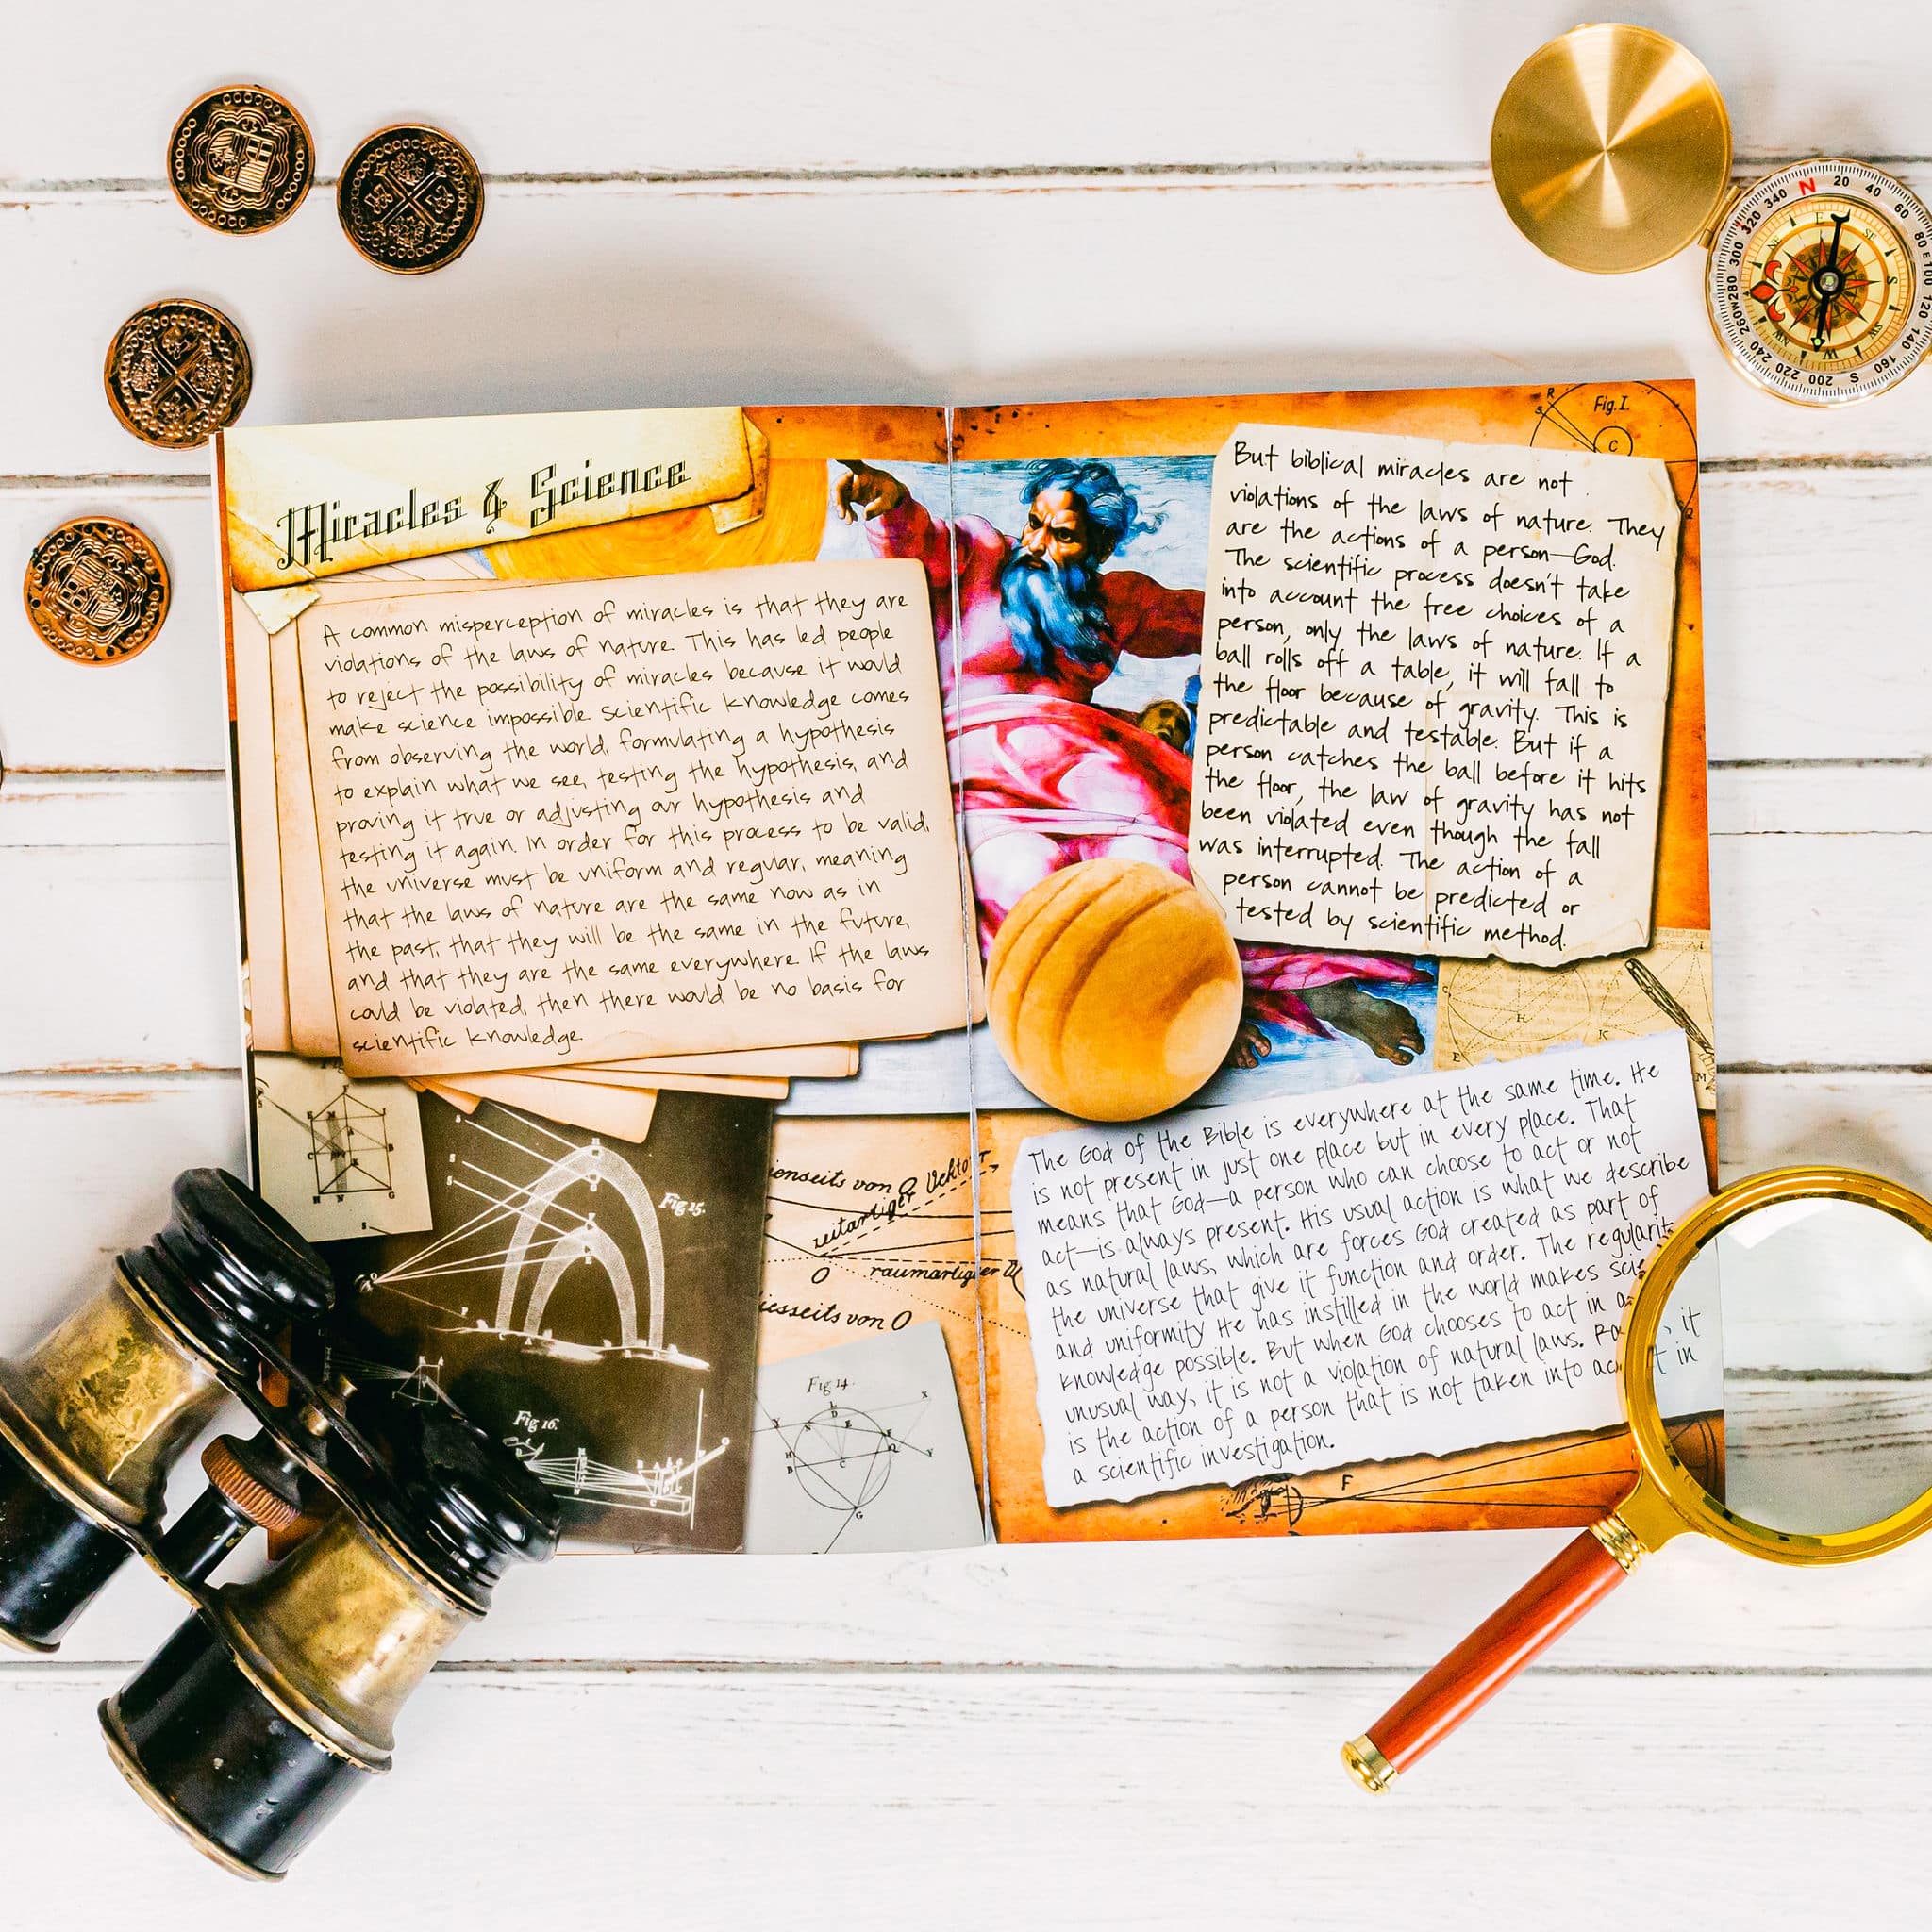 Miracles & Science
A common misperception of miracles is that they are
violations of the laws of nature. This has led people
to reject the possibility of miracles because it would
make science impossible. Scientific knowledge comes
from observing the world, formulating a hypothesis
to explain what we see, testing the hypothesis, and
proving it true or adjusting our hypothesis and
testing it again. In order for this process to be valid,
the universe must be uniform and regular, meaning
that the laws of nature are the same now as in
the past, that they will be the same in the future,
and that they are the same everywhere. If the laws
could be violated, then there would be no basis for
scientific knowledge.
But biblical miracles are not
violations of the laws of nature. They
are the actions of a person—God.
The scientific process doesn't take
into account the free choices of a
person, only the laws of nature. If a
ball rolls off a table, it will fall to
the floor because of gravity. This is
predictable and testable. But if a
person catches the ball before it hits
the floor, the law of gravity has not
been violated even though the fall
was interrupted. The action of a
person cannot be predicted or
tested by scientific method.
The God of the Bible is everywhere at the same time. He
is not present in just one place but in every place. That
means that God—a person who can choose to act or not
act—is always present. His usual action is what we describe
as natural laws, which are forces God created as part of
the universe that give it function and order. The regularit
and uniformity He has instilled in the world makes scie
knowledge possible. But when God chooses to act in a
unusual way, it is not a violation of natural laws. Ra it
is the action of a person that is not taken into ac t in
a scientific investigation.
Fig. I.
R
S
C
Fig 15.
Fig 16.
Fig 14.
jenseits von O
zeitartiger Vektor
O
raumartiger
diesseits von O
H
K
E
M
F
N 20 40 60 80 E 100 120 140 160 S 200 220 240 260 W 280 300 320 340
E SE S SW W NW NE